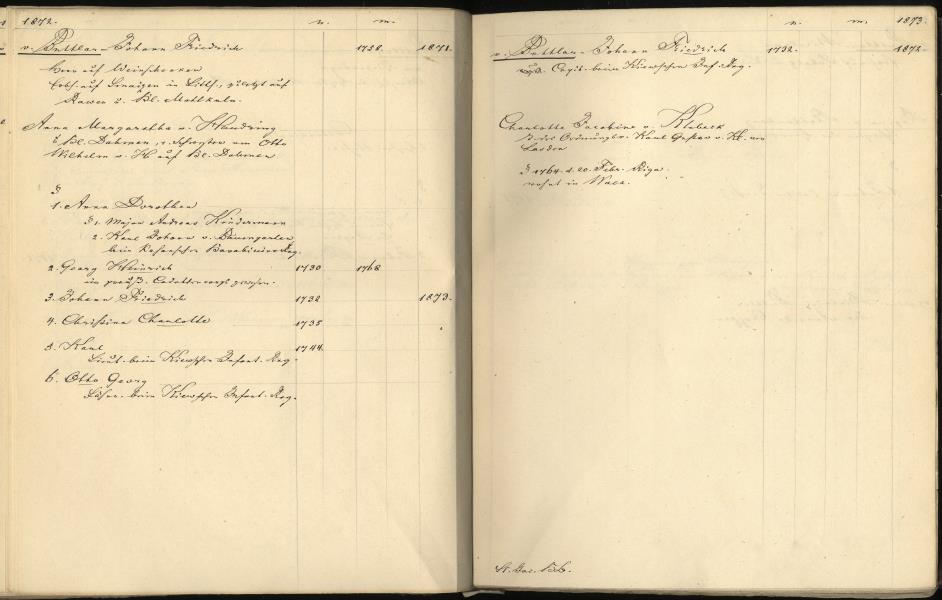 1872. n. m.
v. Buttlar - Johann Friedrich 1758. 1871.
Herr auf
Erbh. auf in Litth., zuletzt auf
Rawen u. Kl. Mattkuln.
Anna Margaretha v. Haudring
T. Kl. Dahmen, Schwester von Otto
Wilhelm v. H auf Kl. Dahmen
§
1. Anna Dorothea
§ 1. Major Andreas Kindermann
2. Karl Johann v. Baumgarten
beim Reg.
2. Georg Heinrich 1730 1768
im preuß. Cadettencorps gewesen.
3. Johann Friedrich 1732 1873.
4. Christina Charlotte 1735
5. Karl 1744
Lieut. beim Kiewschen Infant. Reg.
6. Otto Georg
beim Kiewschen Infant. Reg.
n. m. 1873.
v. Buttlar - Johann Friedrich 1732. 1872.
Capit. beim Kiewschen Inf. Reg.
Charlotte Jacobine v. Klebeck
T. des Karl Gustav v. Kl. von
Lasdon
§ 1764. d. 20. Febr. Riga.
wohnt in
St. Jac. Kb.